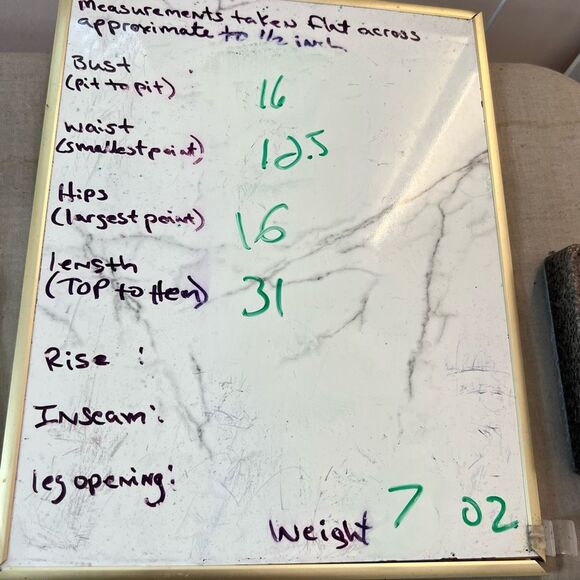 Measurements taken flat across
approximate to 1/2 inch
Bust
(pit to pit) 16
waist
(smallest point) 12.5
Hips
(largest point) 16
length
(TOP to Hem) 31
Rise :
Inseam:
leg opening:
Weight 7 oz